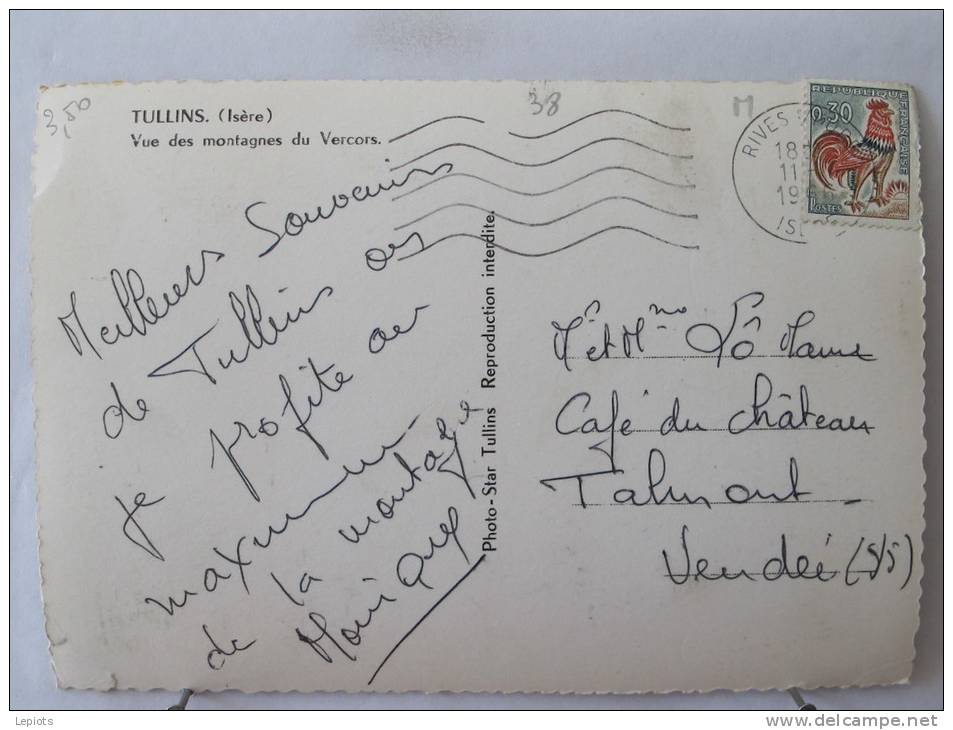 3,50
TULLINS. (Isère)
Vue des montagnes du Vercors.
38
M
Meilleurs Souvenirs
de Tullins où
je profite au
maximum
de la montagne
Monique
Photo-Star Tullins Reproduction interdite.
RIVES
18
11
19
REPUBLIQUE FRANÇAISE
0,30
POSTES
Mr et Mme
Café du Château
Talmont
Vendée
Lepiots
www.delcampe.net